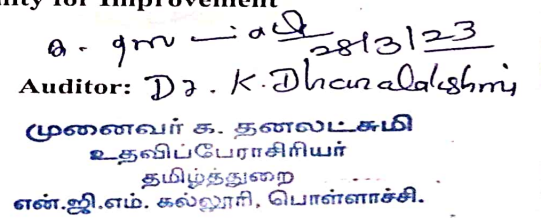 ity for Improvement
28/3/23
Auditor: Dr. K. Dhanalakshmi
முனைவர் க. தனலட்சுமி
உதவிப்பேராசிரியர்
தமிழ்த்துறை
என்.ஜி.எம். கல்லூரி, பொள்ளாச்சி.